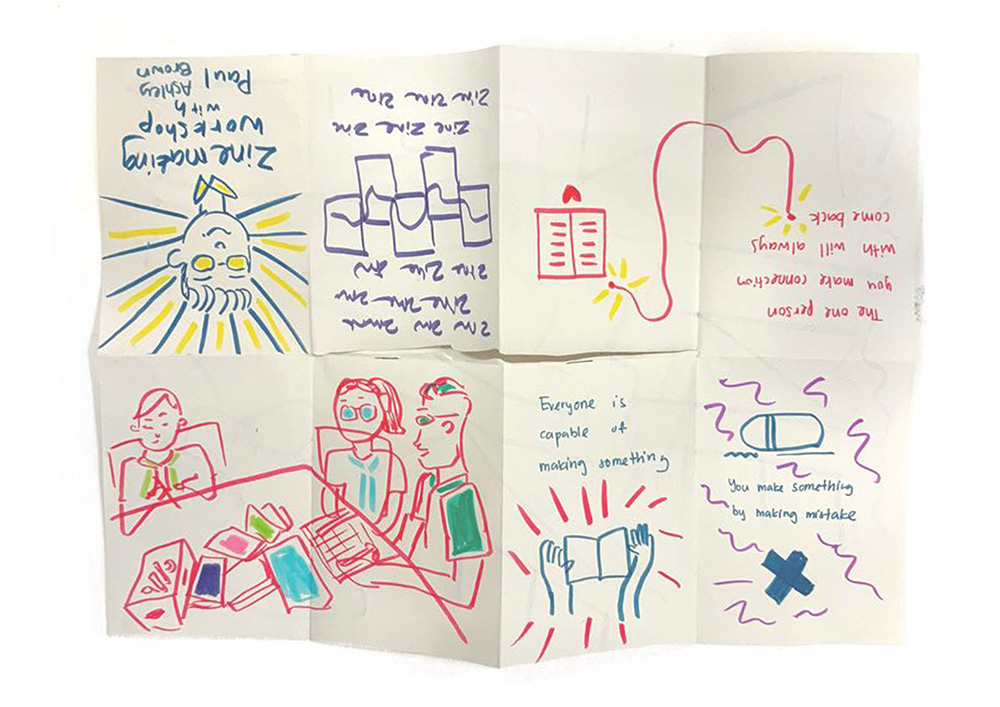 Zine making
workshop
with Ashley
Paul Brown
Zine Zine
Zine Zine Zine
Zine Zine Zine
The one person
you make connection
with will always
come back
Everyone is
capable of
making something
You make something
by making mistake